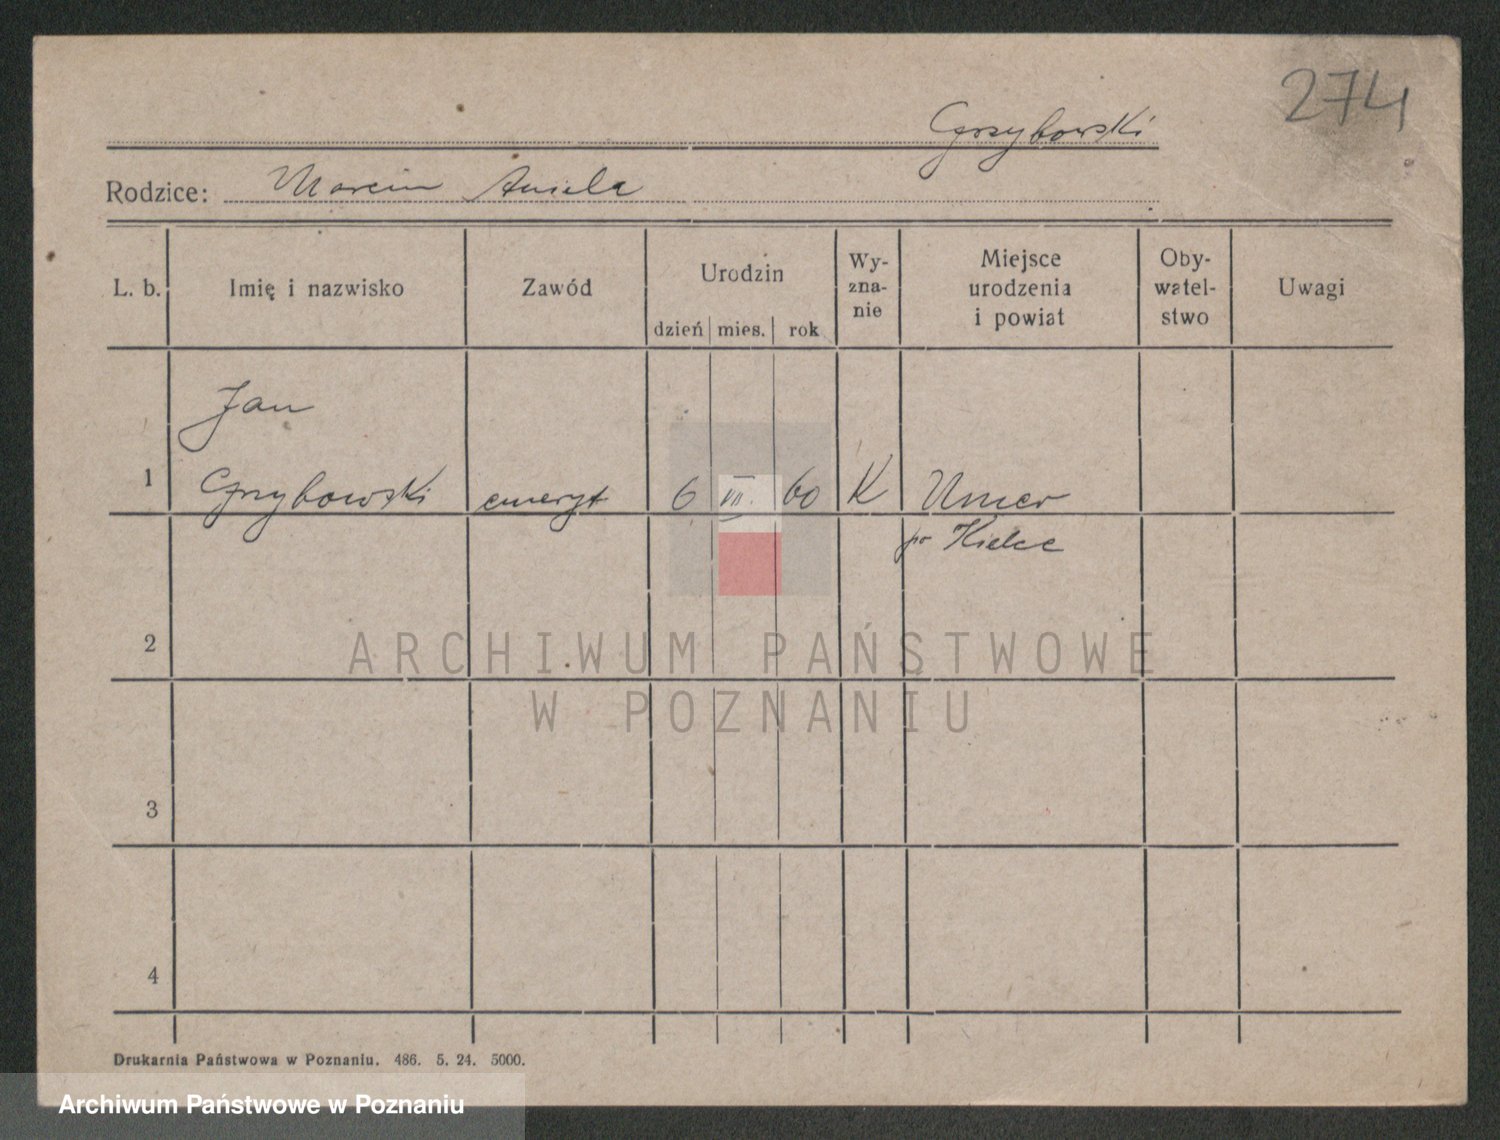 274
Grzybowski
Rodzice: Marcin Aniela
L. b. Imię i nazwisko Zawód Urodzin dzień mies. rok Wy-zna-nie Miejsce urodzenia i powiat Oby-watel-stwo Uwagi
Jan
1 Grzybowski emeryt 6 VII. 60 K Umer
po Kielce
2
ARCHIWUM PAŃSTWOWE
W POZNANIU
3
4
Drukarnia Państwowa w Poznaniu. 486. 5. 24. 5000.
Archiwum Państwowe w Poznaniu